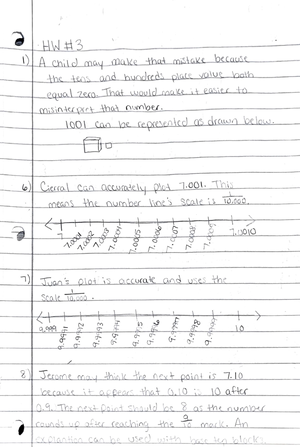 HW #3
1) A child may make that mistake because
the tens and hundreds place value both
equal zero. That would make it easier to
misinterpret that number.
1001 can be represented as drawn below.
6) Cierral can accurately plot 7.001. This
means the number line's scale is 1/10,000.
7 7.0001 7.0002 7.0003 7.0004 7.0005 7.0006 7.0007 7.0008 7.0009 7.0010
7) Juan's plot is accurate and uses the
scale 1/10,000.
9.999 9.9991 9.9992 9.9993 9.9994 9.9995 9.9996 9.9997 9.9998 9.9999 10
8) Jerome may think the next point is 7.10
because it appears that 0.10 is 10 after
The next point should be 8 as the number
rounds up after reaching the 9/10 mark. An
explantion can be used with base ten blocks.